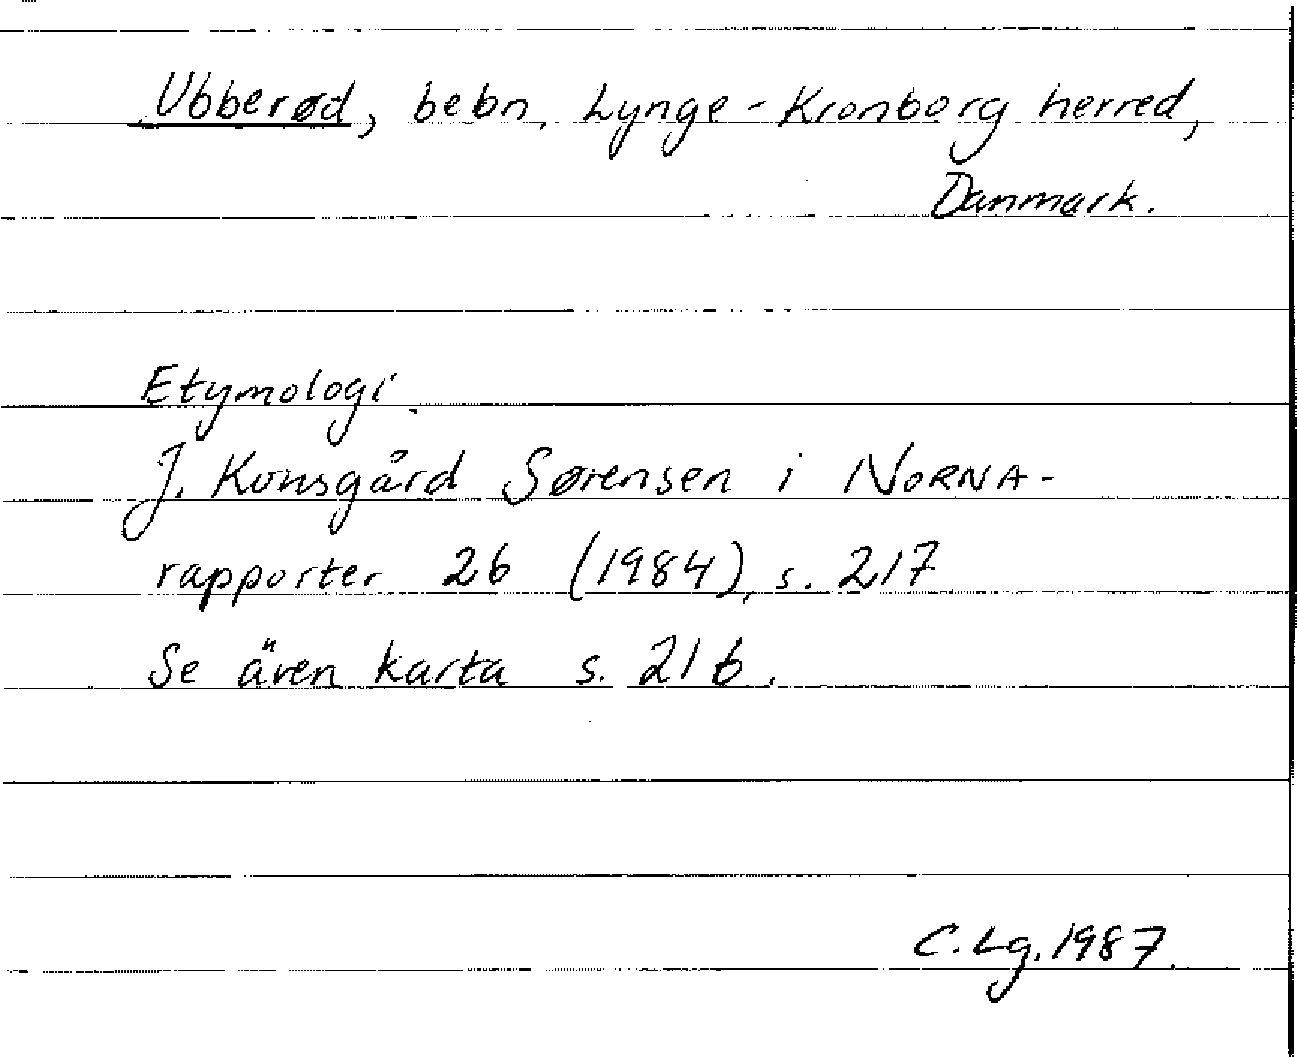 Ubberød, bebn. Lynge-Kronborg herred,
Danmark.
Etymologi.
J. Konsgård Sørensen i NORNA-
rapporter 26 (1984), s. 217
Se även karta s. 216.
C. Lg. 1987.